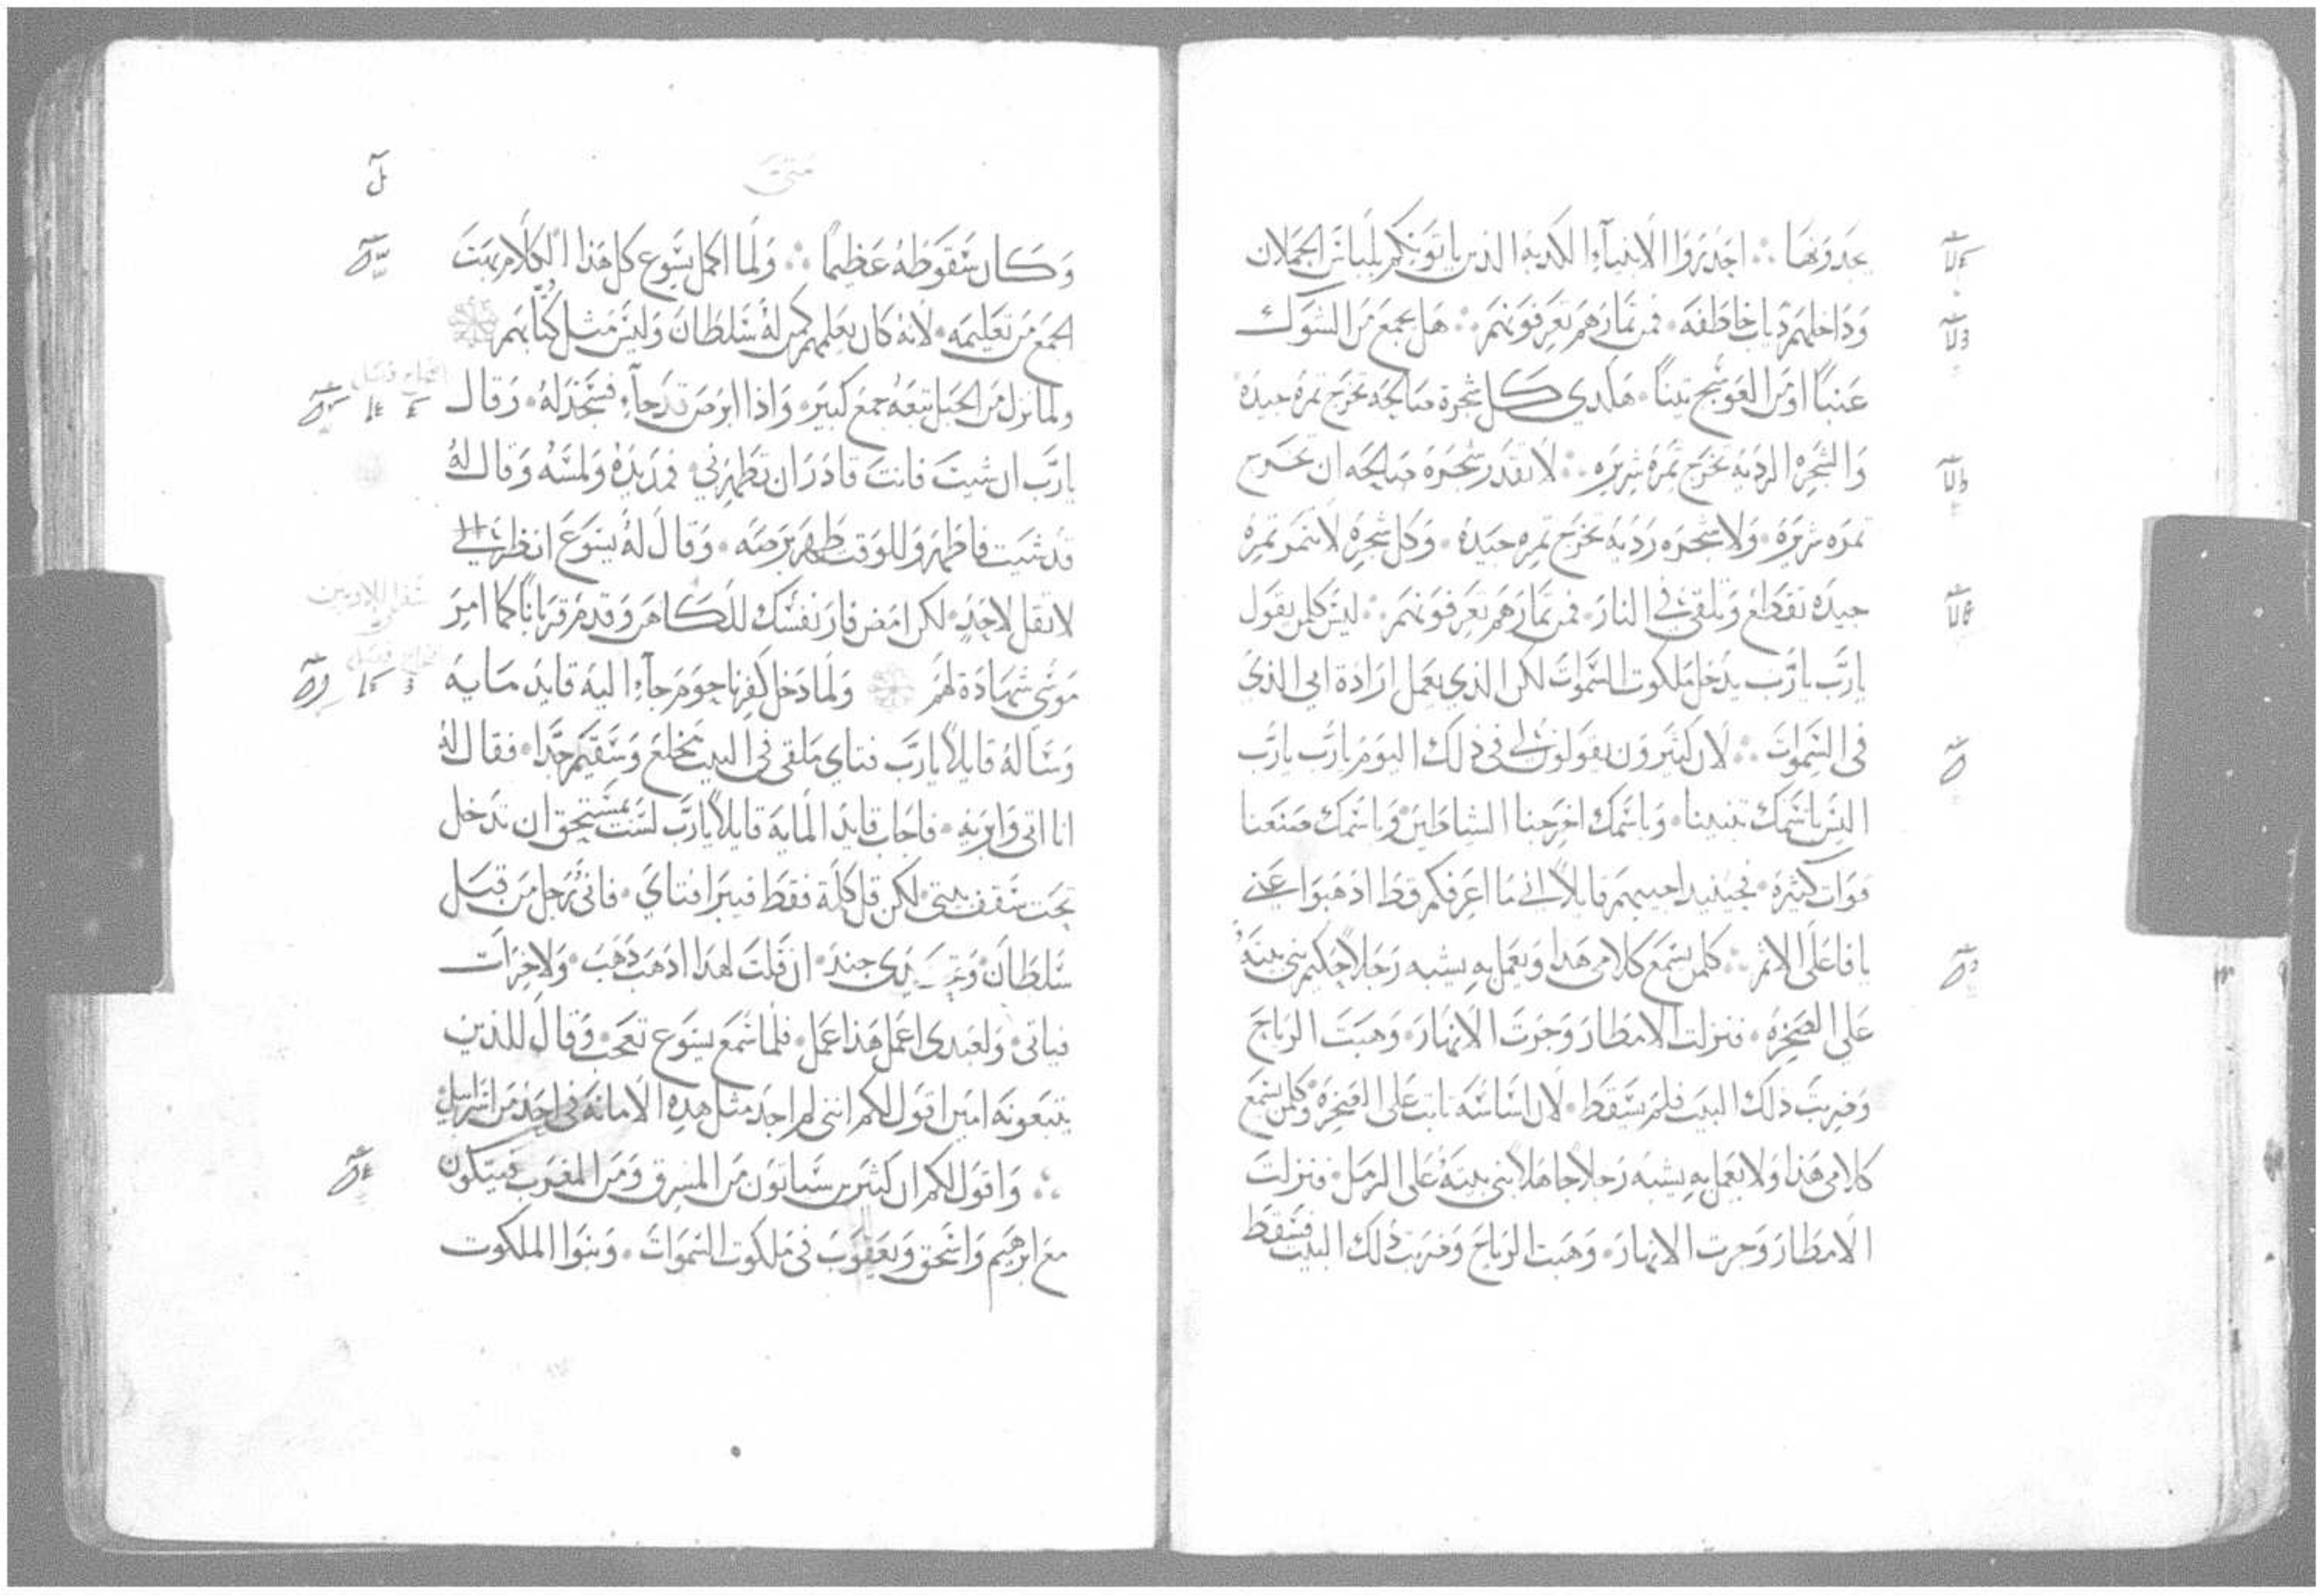 يجدونها ∴ احذروا الانبياء الكذبه الذين ياتونكم بلباس الحملان
وداخلهم ذياب خاطفه · فمن ثمارهم تعرفونهم ∴ هل يجمع من الشوك
عنبًا او من العوسج تينًا · هكدي كل شجرة صالحه تخرج ثمره جيده
والشجره الرديه تخرج ثمره شريره ∴ لا تقدر شجره صالحه ان تخرج
ثمره شريره · ولا شجره رديه تخرج ثمره جيده · وكل شجره لا تثمر ثمره
جيده تقطع وتلقى في النار · فمن ثمارهم تعرفونهم ∴ ليس كلمن يقول
يا رب يا رب يدخل ملكوت السموات لكن الذي يعمل ارادة ابي الذي
في السموات ∴ لان كثيرون يقولون لي في ذلك اليوم يا رب يا رب
اليس باسمك تنبينا · وباسمك اخرجنا الشياطين وباسمك صنعنا
قوات كثيره · فحينيذ اجيبهم قايلاً اني ما اعرفكم قط اذهبوا عني
يا فاعلى الاثم ∴ كلمن يسمع كلامى هذا ويعمل به يشبه رجلاً حكيم بنى بيته
على الصخره · فنزلت الامطار وجرت الانهار · وهبت الرياح
وضربت ذلك البيت فلم يسقط · لان اساسه ثابت على الصخره وكلمن يسمع
كلامى هذا ولا يعمل به يشبه رجلا جاهلا بنى بيته على الرمل · فنزلت
الامطار وجرت الانهار · وهبت الرياح وضربت ذلك البيت فسقط
متى
وكان سقوطه عظيمًا ∴ ولما اكمل يسوع كل هذا الكلام بهت
الجمع من تعليمه · لانه كان يعلمهم كمن له سلطان وليس مثل كتابهم
ولما نزل من الجبل تبعه جمع كبير · واذا ابرص قد جاء فسجد له · وقال
يا رب ان شيت فانت قادر ان تطهرني · فمد يده ولمسه وقال له
قد شيت فاطهر وللوقت طهر برصه · وقال له يسوع انظر
لا تقل لاحد · لكن امض فار نفسك للكاهن وقدم قربانًا كما امر
موسى شهادة لهم ولما دخل كفرناحوم جاء اليه قايد مايه
وساله قايلاً يا رب فتاي ملقى في البيت مخلع وسقيم جدا · فقال له
انا اتى وابريه · فاجاب قايد المايه قايلاً يا رب لست مستحق ان تدخل
تحت سقف بيتى · لكن قل كلمة فقط فيبرا فتاي · فانى رجل من قبل
سلطان يدى جند · ان قلت لهذا اذهب ذهب · ولاخر ات
فياتى · ولعبدى اعمل هذا عمل · فلما سمع يسوع تعجب · وقال للذين
يتبعونه امين اقول لكم اننى لم اجد مثل هذه الامانة في احد من اسراييل
∴ واقول لكم ان كثيرين سياتون من المشرق ومن المغرب فيتكون
مع ابرهيم واسحق ويعقوب في ملكوت السموات · وبنوا الملكوت